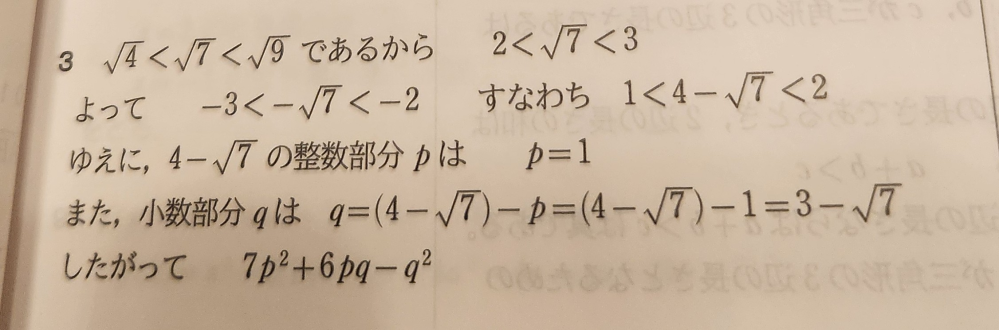 3 √4 < √7 < √9 であるから 2 < √7 < 3
よって −3 < −√7 < −2 すなわち 1 < 4−√7 < 2
ゆえに, 4−√7 の整数部分 p は p=1
また, 小数部分 q は q=(4−√7)−p=(4−√7)−1=3−√7
したがって 7p²+6pq−q²